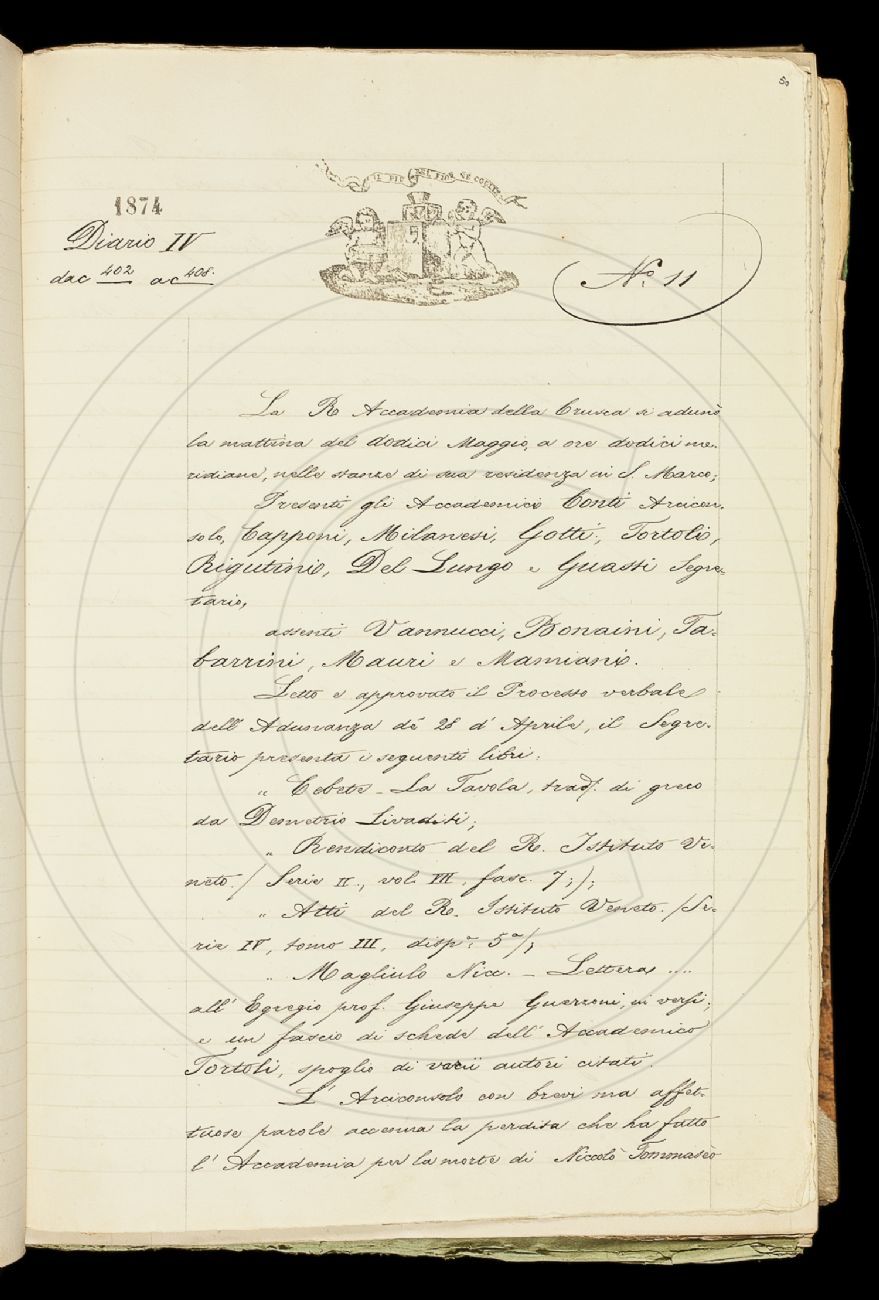 50
IL PIÙ BEL FIOR NE COGLIE
1874
Diario IV
da c 402 a c 408.
N.° 11
La R Accademia della Crusca si adunò
la mattina del dodici Maggio, a ore dodici me-
ridiane, nelle stanze di sua residenza in S. Marco;
Presenti gli Accademici Conti Arcicon-
solo, Capponi, Milanesi, Gotti, Tortoli,
Rigutini, Del Lungo e Guasti Segre-
tario,
assenti Vannucci, Bonaini, Ta-
barrini, Mauri e Mamiani.
Letto e approvato il Processo verbale
dell'Adunanza de' 28 d'Aprile, il Segre-
tario presenta i seguenti libri:
" Cebete - La Tavola, trad. di greco
da Demetrio Livaditi;
" Rendiconto del R. Istituto Ve-
neto. / Serie II., vol. III. fasc. 7; /;
" Atti del R. Istituto Veneto. / Se-
rie IV, tomo III, disp.a 5a /;
" Magliulo Nicc. - Lettera ....
all'Egregio prof. Giuseppe Guerzoni, in versi;
e un fascio di schede dell'Accademico
Tortoli, spoglio di varii autori citati.
L'Arciconsolo con brevi ma affet-
tuose parole accenna la perdita che ha fatto
l'Accademia per la morte di Niccolò Tommasèo